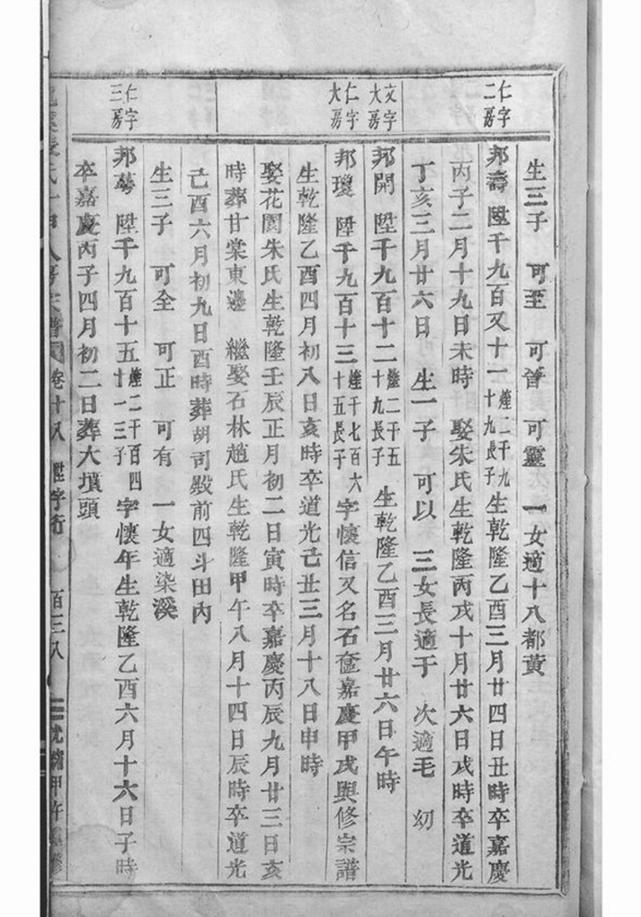 生三子 可至 可晉 可靈 一女適十八都黃
仁字二房
邦壽 陞千九百又十一 煃二千九十九長子 生乾隆乙酉三月廿四日丑時卒嘉慶
丙子二月十九日未時 娶朱氏生乾隆丙戌十月廿六日戌時卒道光
丁亥三月廿六日 生一子 可以 三女長適于 次適毛 幼
文字大房
邦開 陞千九百十二 煃二千五十九長子 生乾隆乙酉三月廿六日午時
仁字大房
邦瓊 陞千九百十三 煃千七百六十五長子 字懷信又名石奩嘉慶甲戌與修宗譜
生乾隆乙酉四月初八日亥時卒道光己丑三月十八日申時
娶花園朱氏生乾隆壬辰正月初二日寅時卒嘉慶丙辰九月廿三日亥
時葬甘棠東邊 繼娶石林趙氏生乾隆甲午八月十四日辰時卒道光
己酉六月初九日酉時葬胡司殿前四斗田內
生三子 可全 可正 可有 一女適染溪
仁字三房
邦蕚 陞千九百十五 煃二千百四廿一三子 字懷年生乾隆乙酉六月十六日子時
卒嘉慶丙子四月初二日葬大墳頭
卷十八 陞字行 百三八